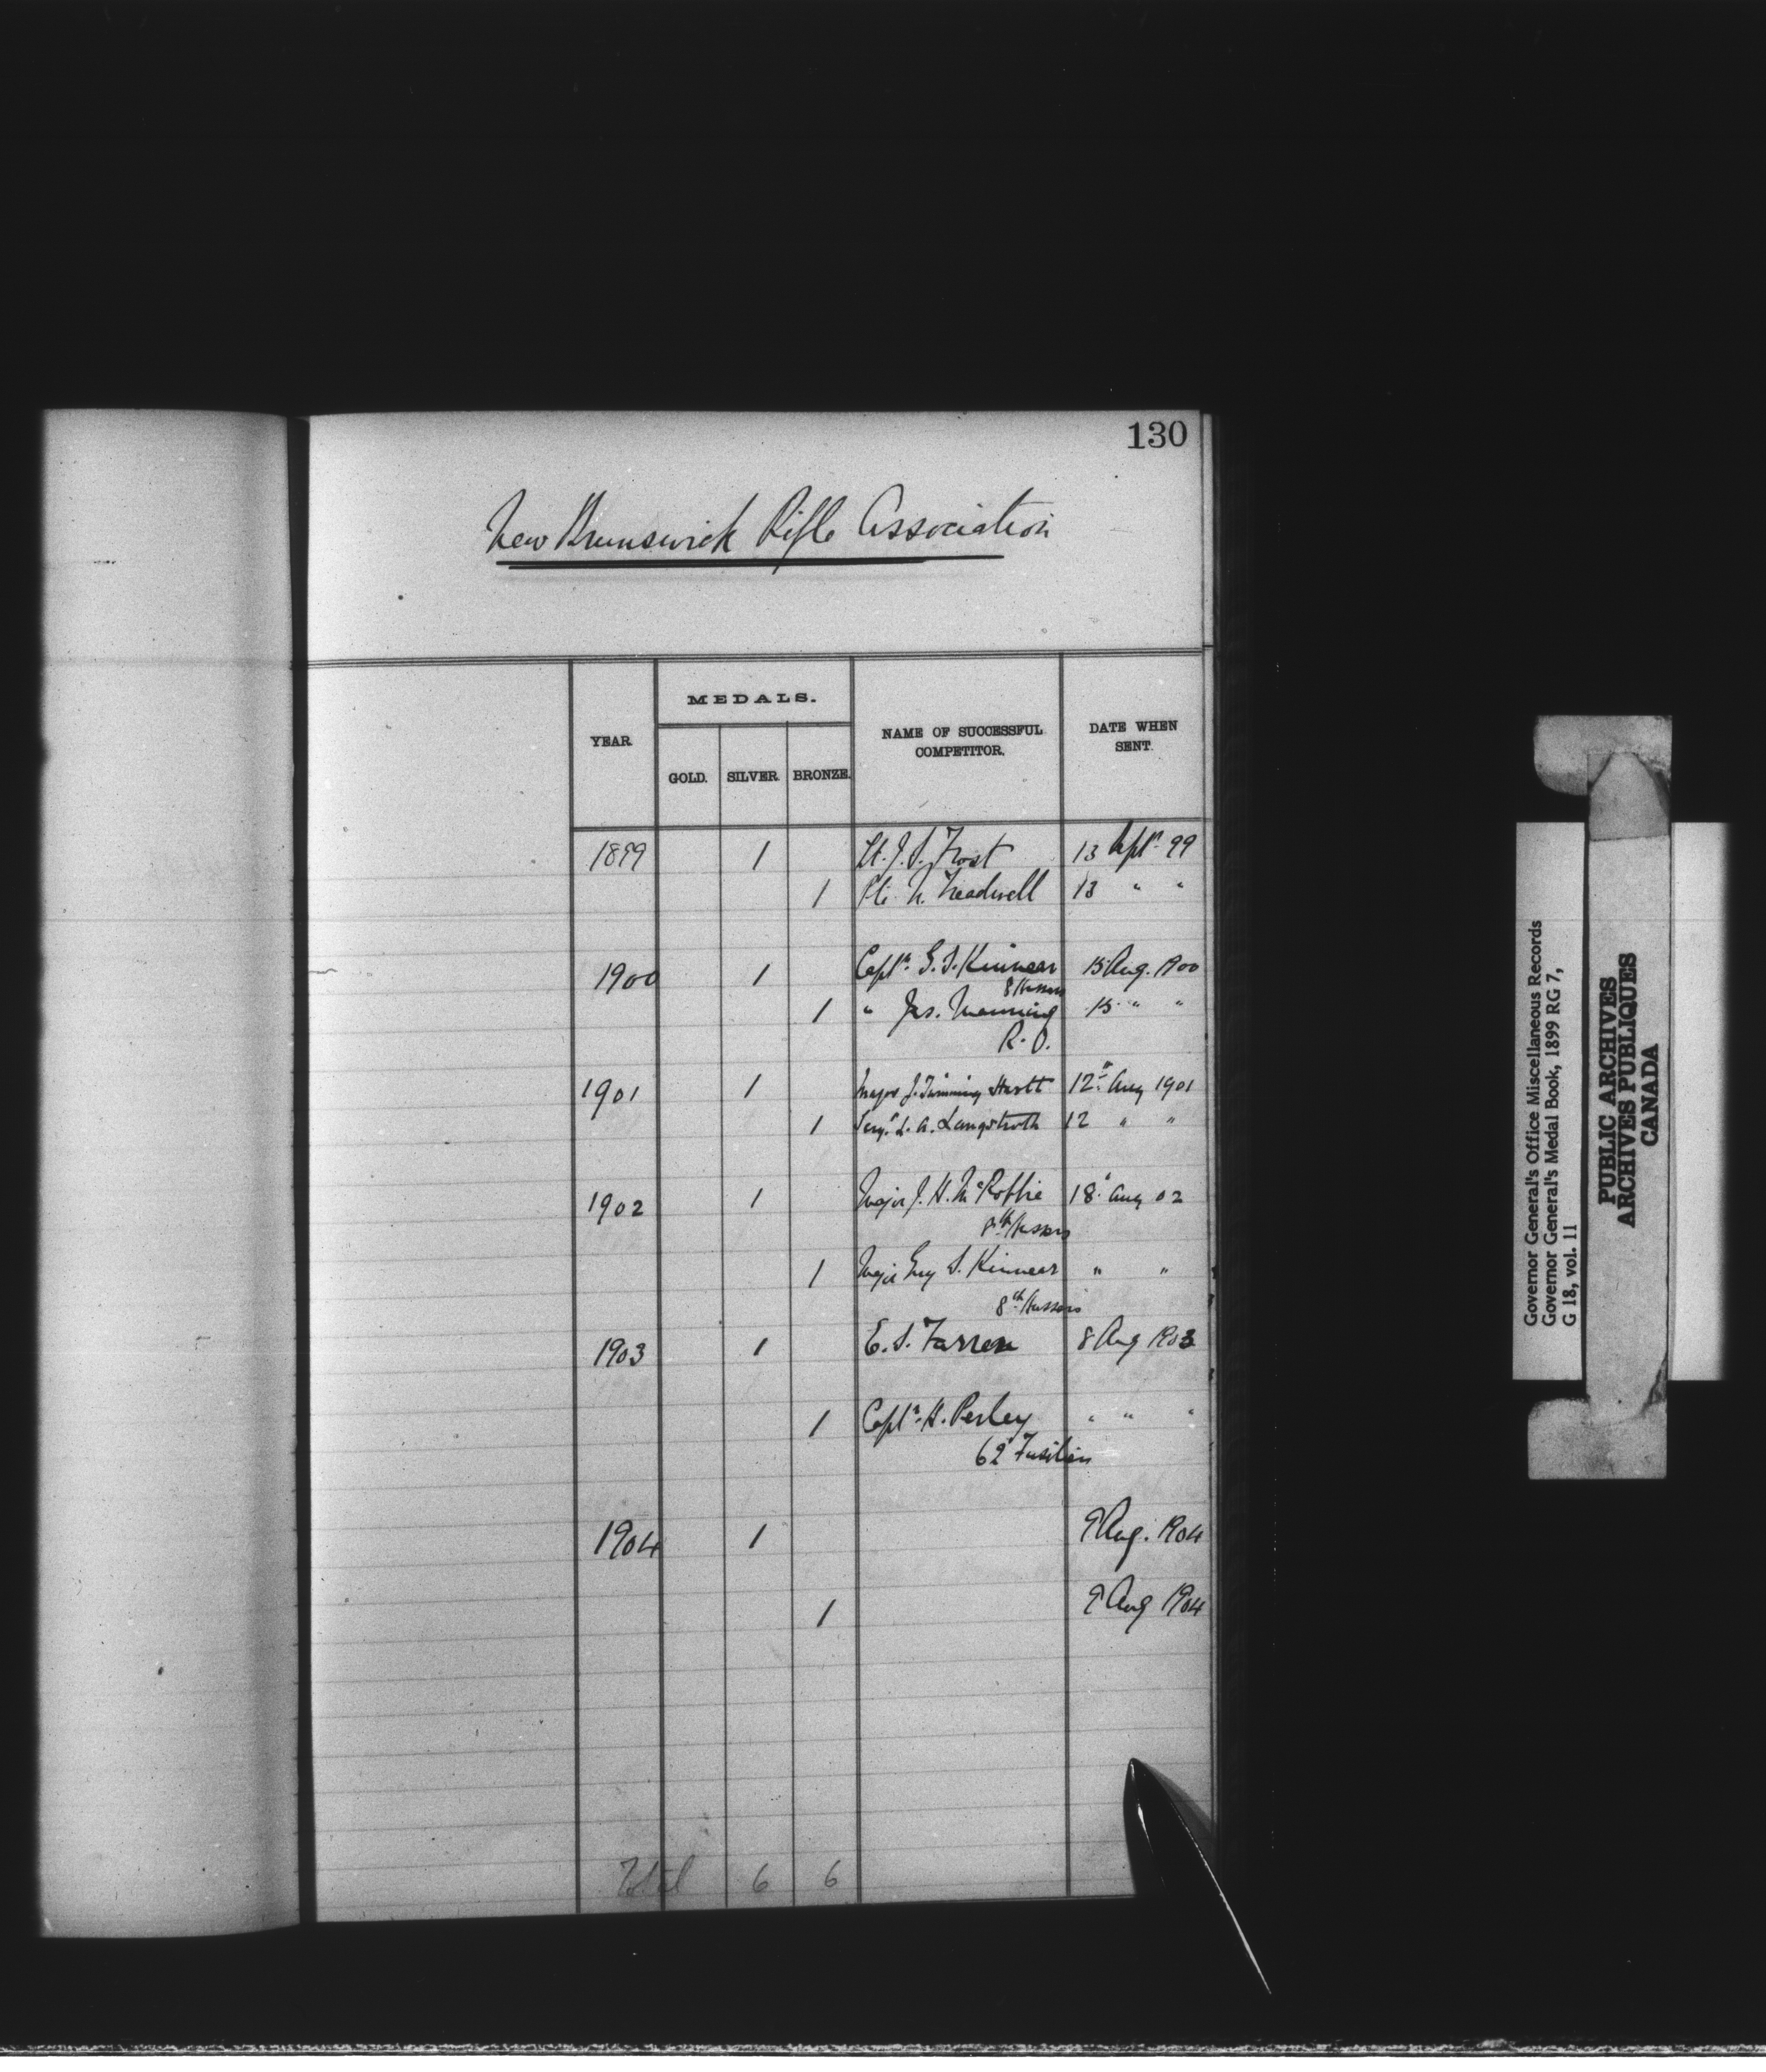 130
New Brunswick Rifle Association
MEDALS.
YEAR
GOLD.
SILVER
BRONZE.
NAME OF SUCCESSFUL
COMPETITOR.
DATE WHEN
SENT.
1899 1 Lt. J. S. Frost 13 Septr 99
1 Pte N. Treadwell 13 " "
1900 1 Captn G. S. Kinnear 15 Aug. 1900
8 Hussars
1 " Jas. Manning 15 " "
R. O.
1901 1 Major J. Twining Hartt 12th Aug 1901
1 Sergt L. A. Langstroth 12 " "
1902 1 Major J. H. McRobbie 18th Aug 02
8th Hussars
1 Major Guy S. Kinnear " "
8th Hussars
1903 1 E. S. Farren 8 Aug 1903
1 Captn H. Perley " " "
62d Fusiliers
1904 1 9 Aug. 1904
1 9 Aug 1904
Total 6 6
Governor General's Office Miscellaneous Records
Governor General's Medal Book, 1899 RG 7,
G 18, vol. 11
PUBLIC ARCHIVES
ARCHIVES PUBLIQUES
CANADA